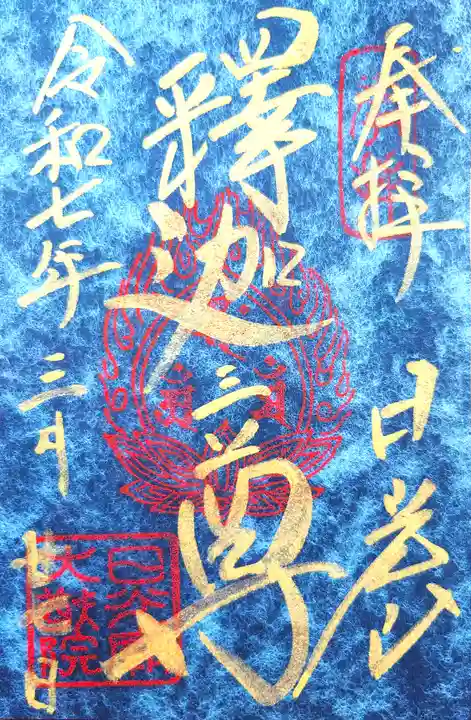 奉拝 日光山
釋迦三尊
令和七年 三月
日光廟
大猷院